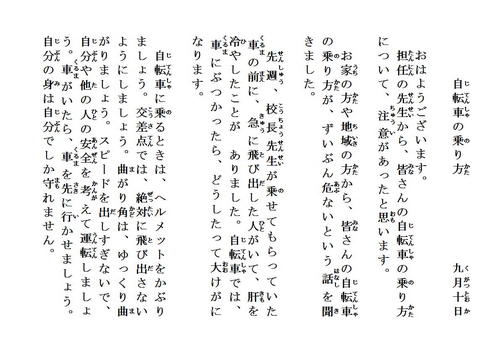 自転車の乗り方 九月十日
おはようございます。
担任の先生から、皆さんの自転車の乗り方
について、注意があったと思います。
お家の方や地域の方から、皆さんの自転車
の乗り方が、ずいぶん危ないという話を聞
きました。
先週、校長先生が乗せてもらっていた
車の前に、急に飛び出した人がいて、肝を
冷やしたことが ありました。自転車では、
車にぶつかったら、どうしたって大けがに
なります。
自転車に乗るときは、ヘルメットをかぶり
ましょう。交差点では、絶対に飛び出さない
ようにしましょう。曲がり角は、ゆっくり曲
がりましょう。スピードを出しすぎないで、
自分や他の人の安全を考えて運転しましょ
う。車がいたら、車を先に行かせましょう。
自分の身は自分でしか守れません。